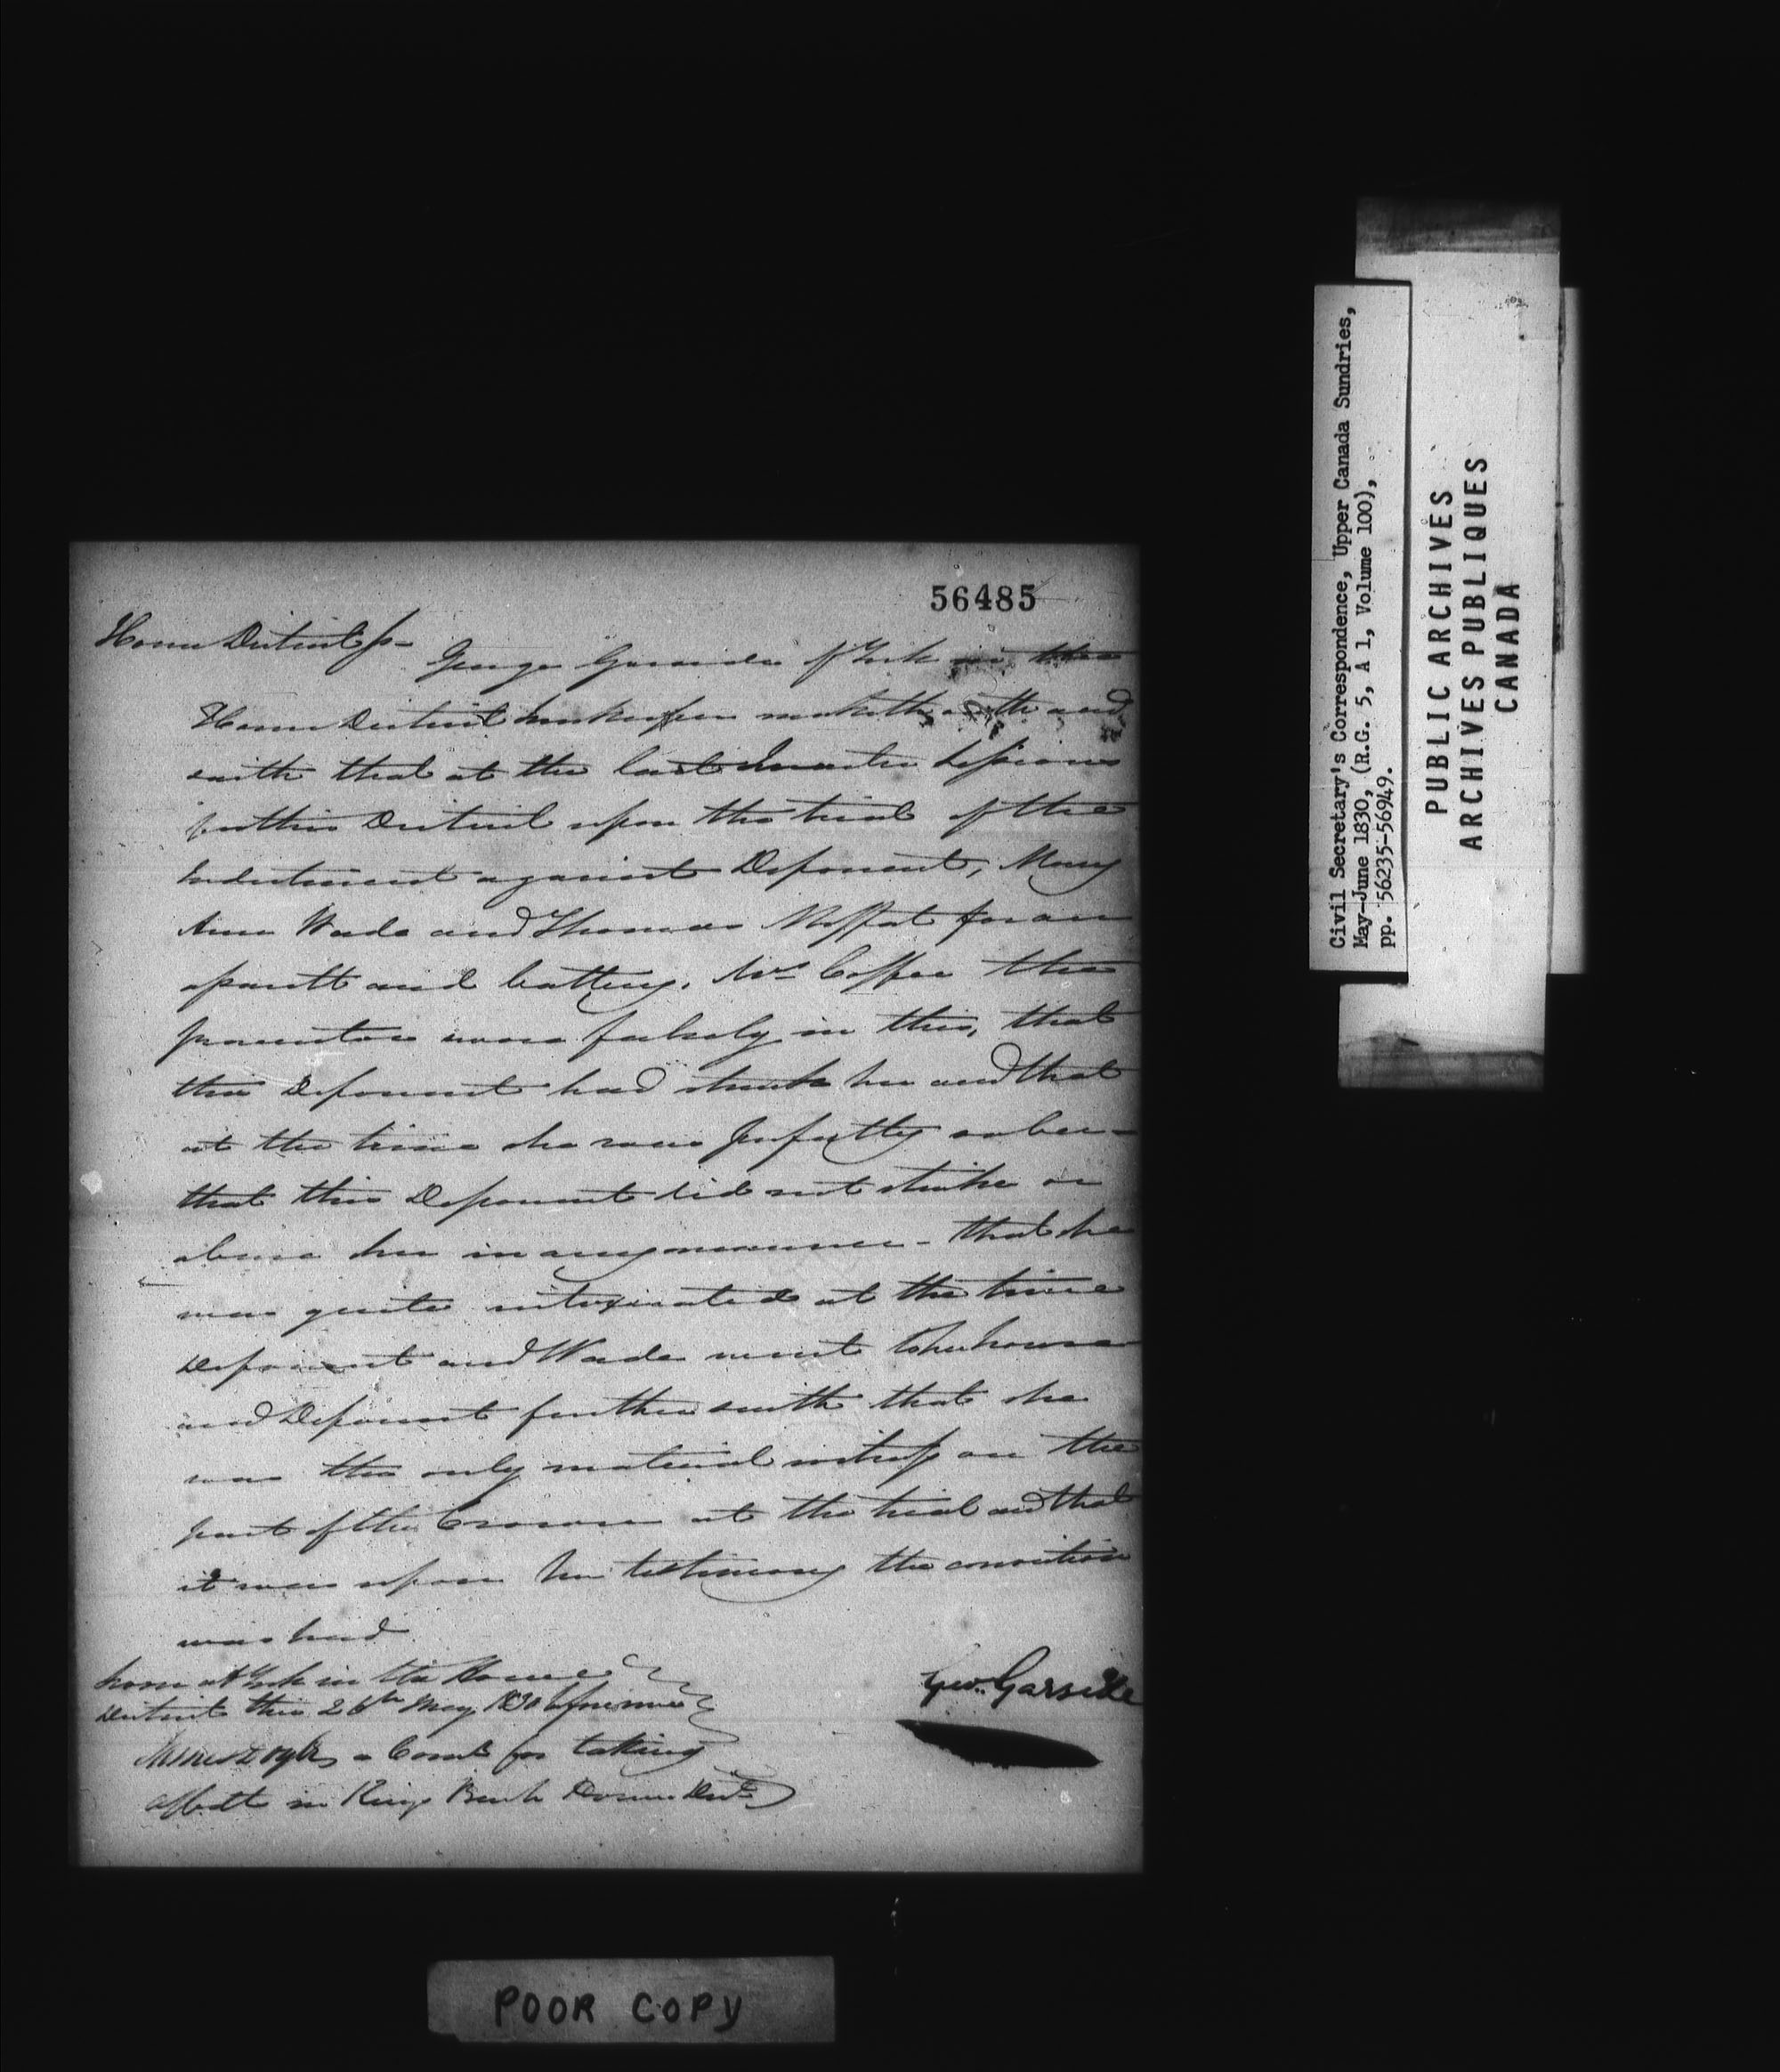 56485
Home District ss-
George Garside of York in the
Home District Innkeeper maketh oath and
saith that at the last Quarter Sessions
for this District upon the trial of the
Indictment against Deponent, Mary
Ann Wade and Thomas Moffat for an
assault and battery. Mrs Coffee the
prosecutor swore falsely in this, that
this Deponent had struck her and that
at the time she was perfectly sober -
that this Deponent did not strike or
abuse her in any manner - that she
was quite intoxicated at the time
Deponent and Wade went to her house
and Deponent further saith that she
was the only material witness on the
part of the Crown at the trial and that
it was upon her testimony the conviction
was had
Sworn at York in the Home
District this 26th May 1830 before me
a Comr for taking
affdts in Kings Bench Home Dist
Geo. Garside
POOR COPY
Civil Secretary's Correspondence, Upper Canada Sundries,
May-June 1830, (R.G. 5, A 1, Volume 100),
pp. 56235-56949.
PUBLIC ARCHIVES
ARCHIVES PUBLIQUES
CANADA